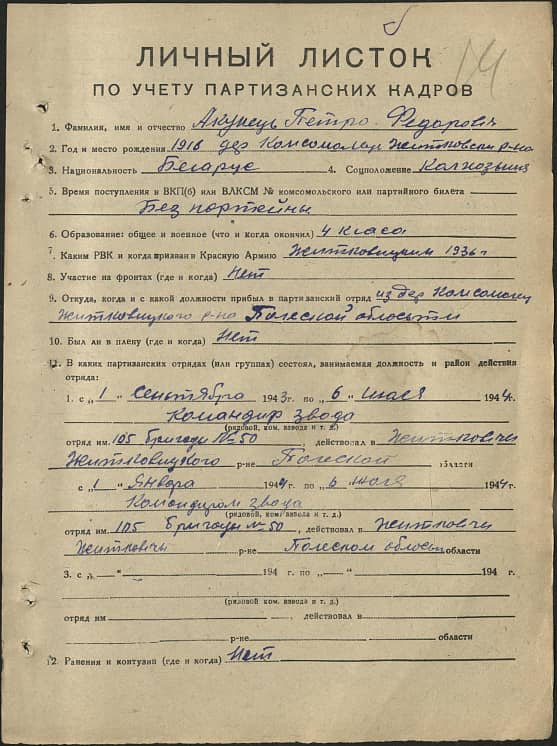 14
ЛИЧНЫЙ ЛИСТОК
ПО УЧЕТУ ПАРТИЗАНСКИХ КАДРОВ
1. Фамилия, имя и отчество Акунець Пётро Федаровіч
2. Год и место рождения 1916 дер Комсомолец Житковски р-на
3. Национальность Беларус 4. Соцположение Калхозьник
5. Время поступления в ВКП(б) или ВЛКСМ № комсомольского или партийного билета
Без портейны
6. Образование: общее и военное (что и когда окончил) 4 класа
7. Каким РВК и когда призван в Красную Армию Житковицким 1936 г
8. Участие на фронтах (где и когда) Нет
9. Откуда, когда и с какой должности прибыл в партизанский отряд из дер Комсомолец
Житковицкого р-на Полеской облосьти
10. Был ли в плену (где и когда) Нет
11. В каких партизанских отрядах (или группах) состоял, занимаемая должность и район действия
отряда:
1. с „1" Сентября 1943г. по „6" июля 1944г.
Командир звода
(рядовой, ком. взвода и т. д.)
отряд им. 105 бригады № 50, действовал в Житковичи
Житковицкого р-не Полеской области
с „1" Января 1944 г. по „6" июля 1944 г.
Командиром звода
(рядовой, ком. взвода и т. д.)
отряд им. 105 бригады № 50, действовал в Житковичи
Житковичы р-не Полеском облосьти области
3. с „ " 194 г. по „ " 194 г.
(рядовой ком. взвода и т. д.)
отряд им действовал в
р-не области
12. Ранения и контузии (где и когда) Нет